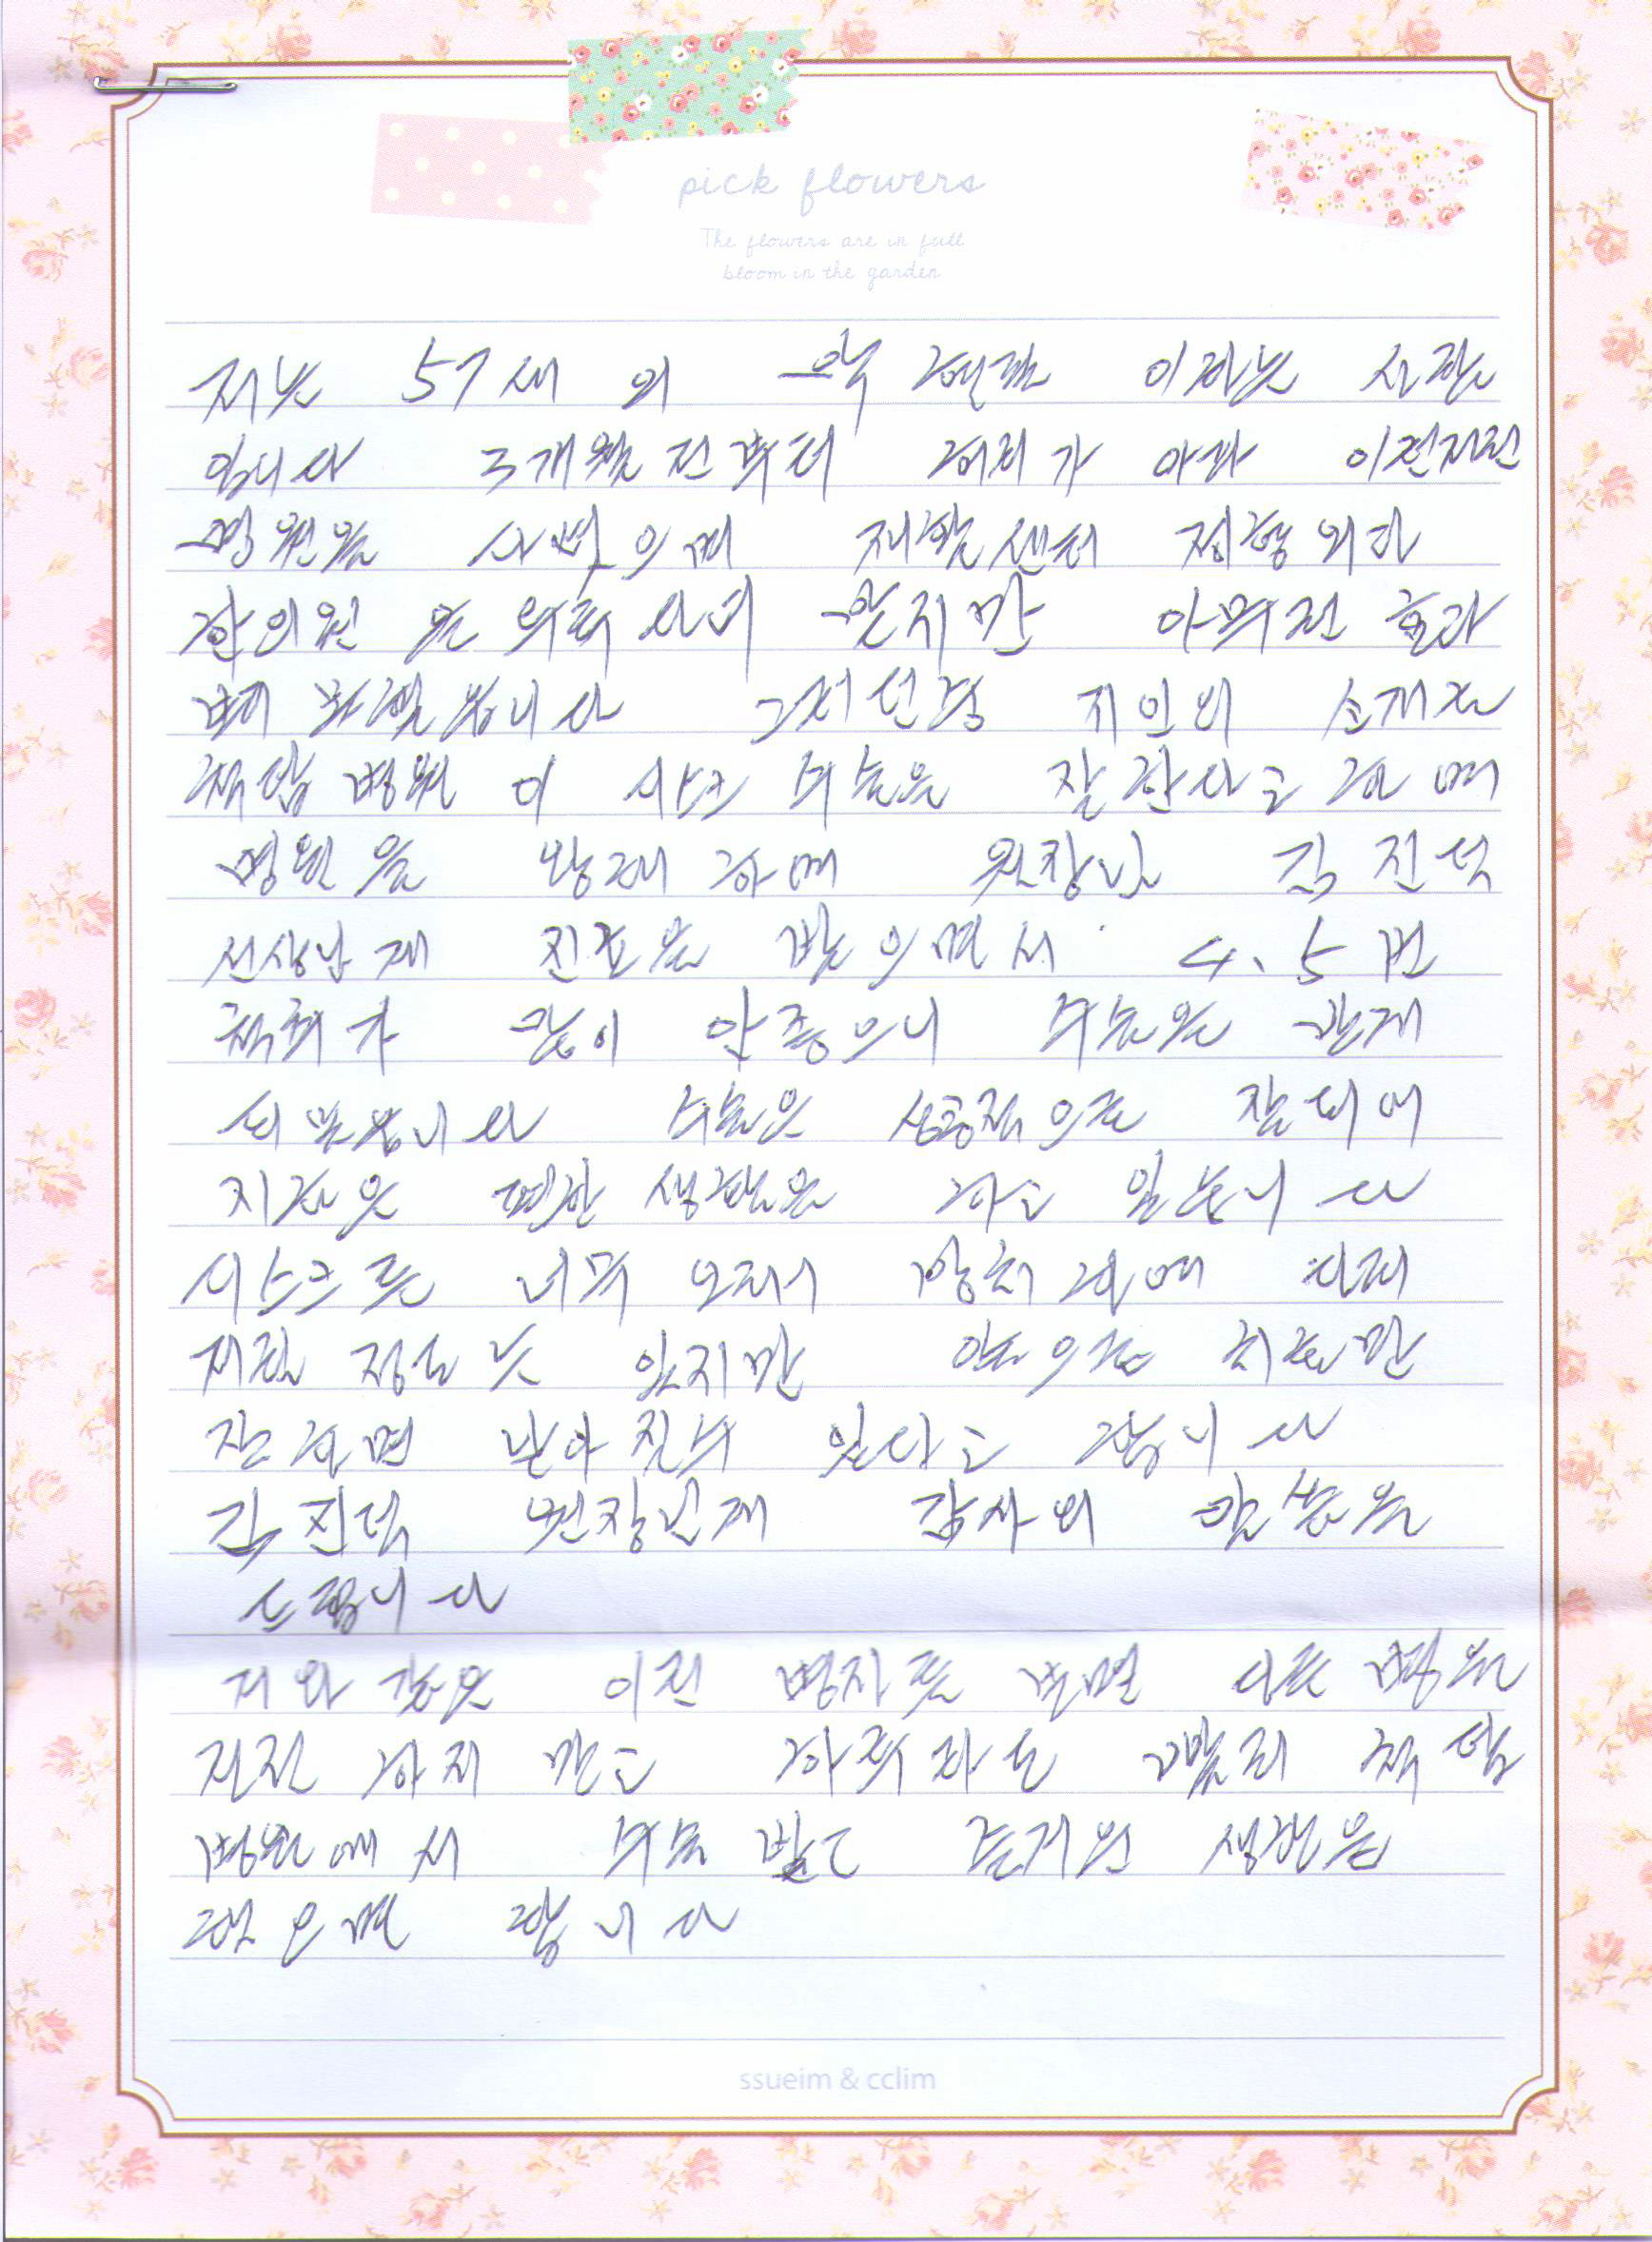 pick flowers
The flowers are in full
bloom in the garden
저는 57세의 이라는 사람
입니다 3개월 전부터 허리가 아파 이런저런
병원을 재활센터 정형외과
한의원을 아무런 효과
그러던중 지인의 소개로
척담병원이 디스크 수술을 잘한다고 하여
병원을 왕래하여 원장님 김진석
선생님께 진료를 받으면서 4、5번
척추가 많이 안좋으니 수술을 받게
되었습니다 수술은 성공적으로 잘되어
지금은 편한 생활을 하고 있습니다
디스크를 너무 오래 방치하여 다리
저린 정도는 있지만 앞으로 치료만
잘하면 나아질수 있다고 합니다
김진석 원장님께 감사의 말씀을
드립니다
저와 같은 이런 병자를 보면 다른 병원
전전 하지 말고 하루라도 빨리 척담
병원에서 수술 받고 즐거운 생활을
했으면 합니다
ssueim & cclim